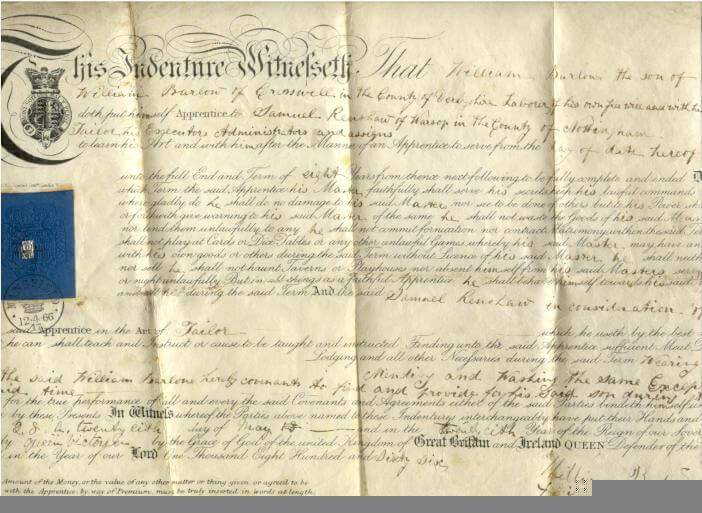 This Indenture Witnesseth That William Barlow the son of
William Barlow of Cresswell in the County of Derbyshire Labourer of his own free will and with he
doth put himself Apprentice to Samuel Renshaw of Warsop in the County of Nottingham
Tailor his Executors Administrators and assigns
to learn his Art and with him after the Manner of an Apprentice to serve from the day of date hereof
unto the full End and Term of eight Years from thence next following to be fully complete and ended
which Term the said Apprentice his Master faithfully shall serve his secrets keep his lawful commands
where gladly do he shall do no damage to his said Master nor see to be done of others but to his Power
or forthwith give warning to his said Master of the same he shall not waste the Goods of his said
nor lend them unlawfully to any he shall not commit fornication nor contract Matrimony within the said
shall not play at Cards or Dice Tables or any other unlawful Games whereby his said Master may have
with his own goods or others during the said Term without Licence of his said Master he shall neith
nor sell he shall not haunt Taverns or Playhouses nor absent himself from his said Masters
or night unlawfully But in all things as a faithful Apprentice he shall behave himself towards his said
and all his during the said Term And the said Samuel Renshaw in consideration of
said Apprentice in the Art of Tailor which he useth by the best
he can shall teach and Instruct or cause to be taught and instructed Finding unto the said Apprentice sufficient Meat
Lodging and all other Necessaries during the said Term Wearing
Mending and Washing the same Excep
the said William Barlow hereby covenants to find and provide for his said son during
said time
for the true performance of all and every the said Covenants and Agreements either of the said Parties bindeth himself
by these Presents In Witness whereof the Parties above named to these Indentures interchangeably have put their Hands and
twentieth day of May and in the twentieth Year of the Reign of our
by Queen Victoria by the Grace of God of the united Kingdom of Great Britain and Ireland QUEEN Defender of the
in the Year of our Lord One Thousand Eight Hundred and Sixty Six
12·4·66
Amount of the Money, or the value of any other matter or thing given or agreed to be
with the Apprentice by way of Premium, must be truly inserted in words at length